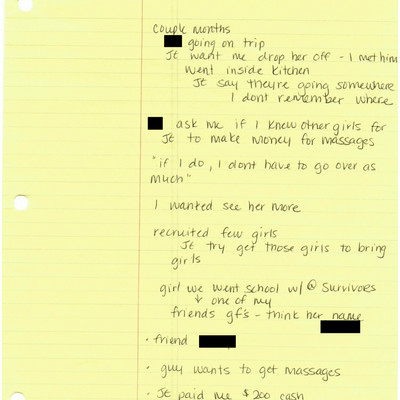 couple months
going on trip
JE want me drop her off - I met him
went inside kitchen
JE say theyre going somewhere
I dont remember where
ask me if I knew other girls for
JE to make money for massages
"if I do, I dont have to go over as
much"
I wanted see her more
recruited few girls
JE try get those girls to bring
girls
girl we went school w/ @ survivors
↓ one of my
friends gf's - think her name
· friend
· guy wants to get massages
· JE paid me $200 cash